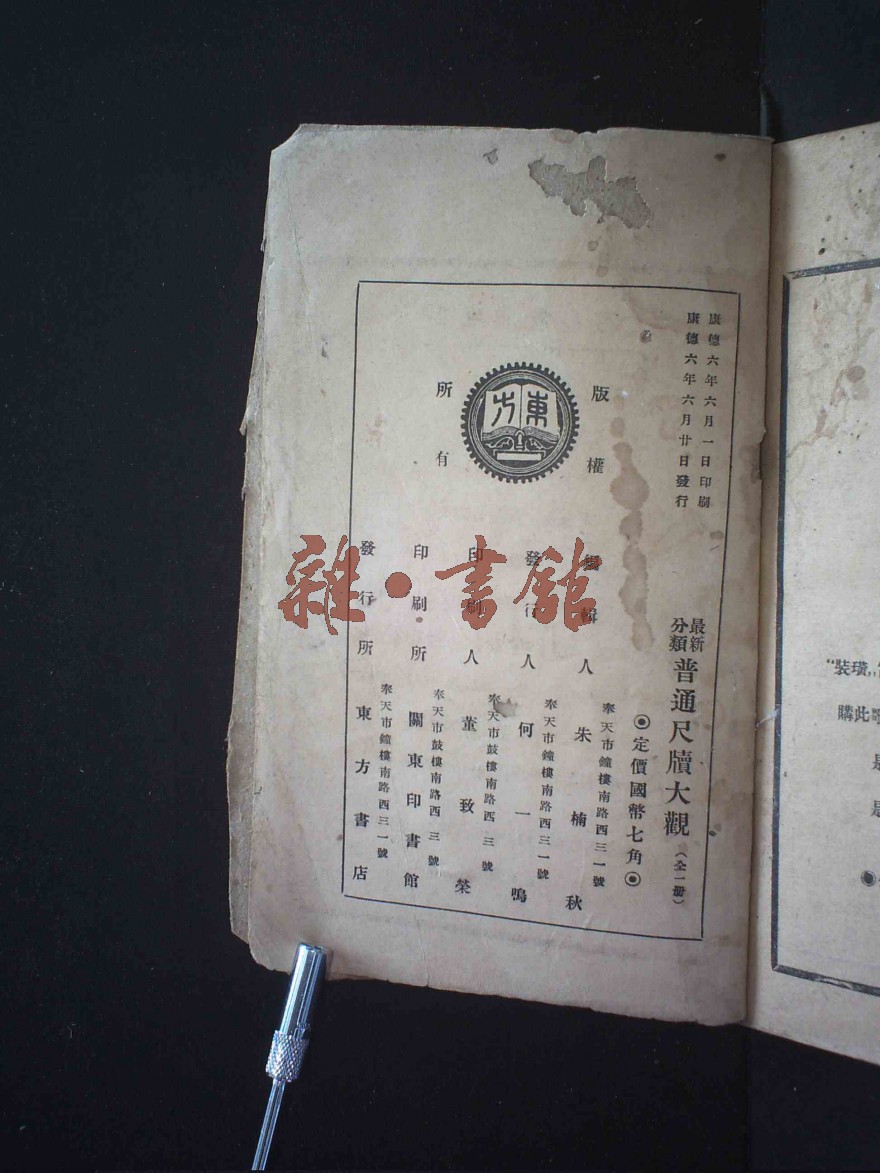 康德六年六月一日印刷
康德六年六月廿日發行
最新分類 普通尺牘大觀（全一册）
◉定價國幣七角◉
版權所有
東方
奉天市鐘樓南路西三一號
編輯人 朱楠秋
奉天市鐘樓南路西三一號
發行人 何一鳴
奉天市鼓樓南路西三號
印刷人 董致榮
奉天市鼓樓南路西三號
印刷所 關東印書館
奉天市鐘樓南路西三一號
發行所 東方書店
雜·書館
"裝璜"
購此
是
是